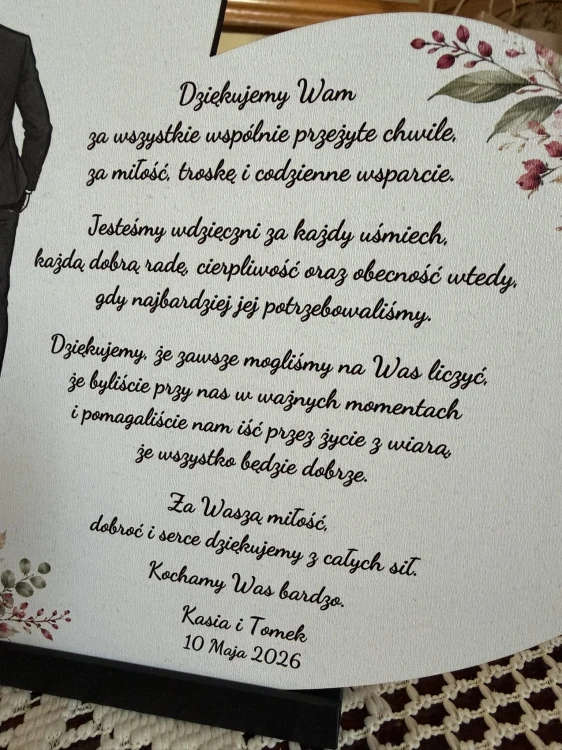 Dziękujemy Wam
za wszystkie wspólnie przeżyte chwile,
za miłość, troskę i codzienne wsparcie.
Jesteśmy wdzięczni za każdy uśmiech,
każdą dobrą radę, cierpliwość oraz obecność wtedy,
gdy najbardziej jej potrzebowaliśmy.
Dziękujemy, że zawsze mogliśmy na Was liczyć,
że byliście przy nas w ważnych momentach
i pomagaliście nam iść przez życie z wiarą,
że wszystko będzie dobrze.
Za Waszą miłość,
dobroć i serce dziękujemy z całych sił.
Kochamy Was bardzo.
Kasia i Tomek
10 Maja 2026